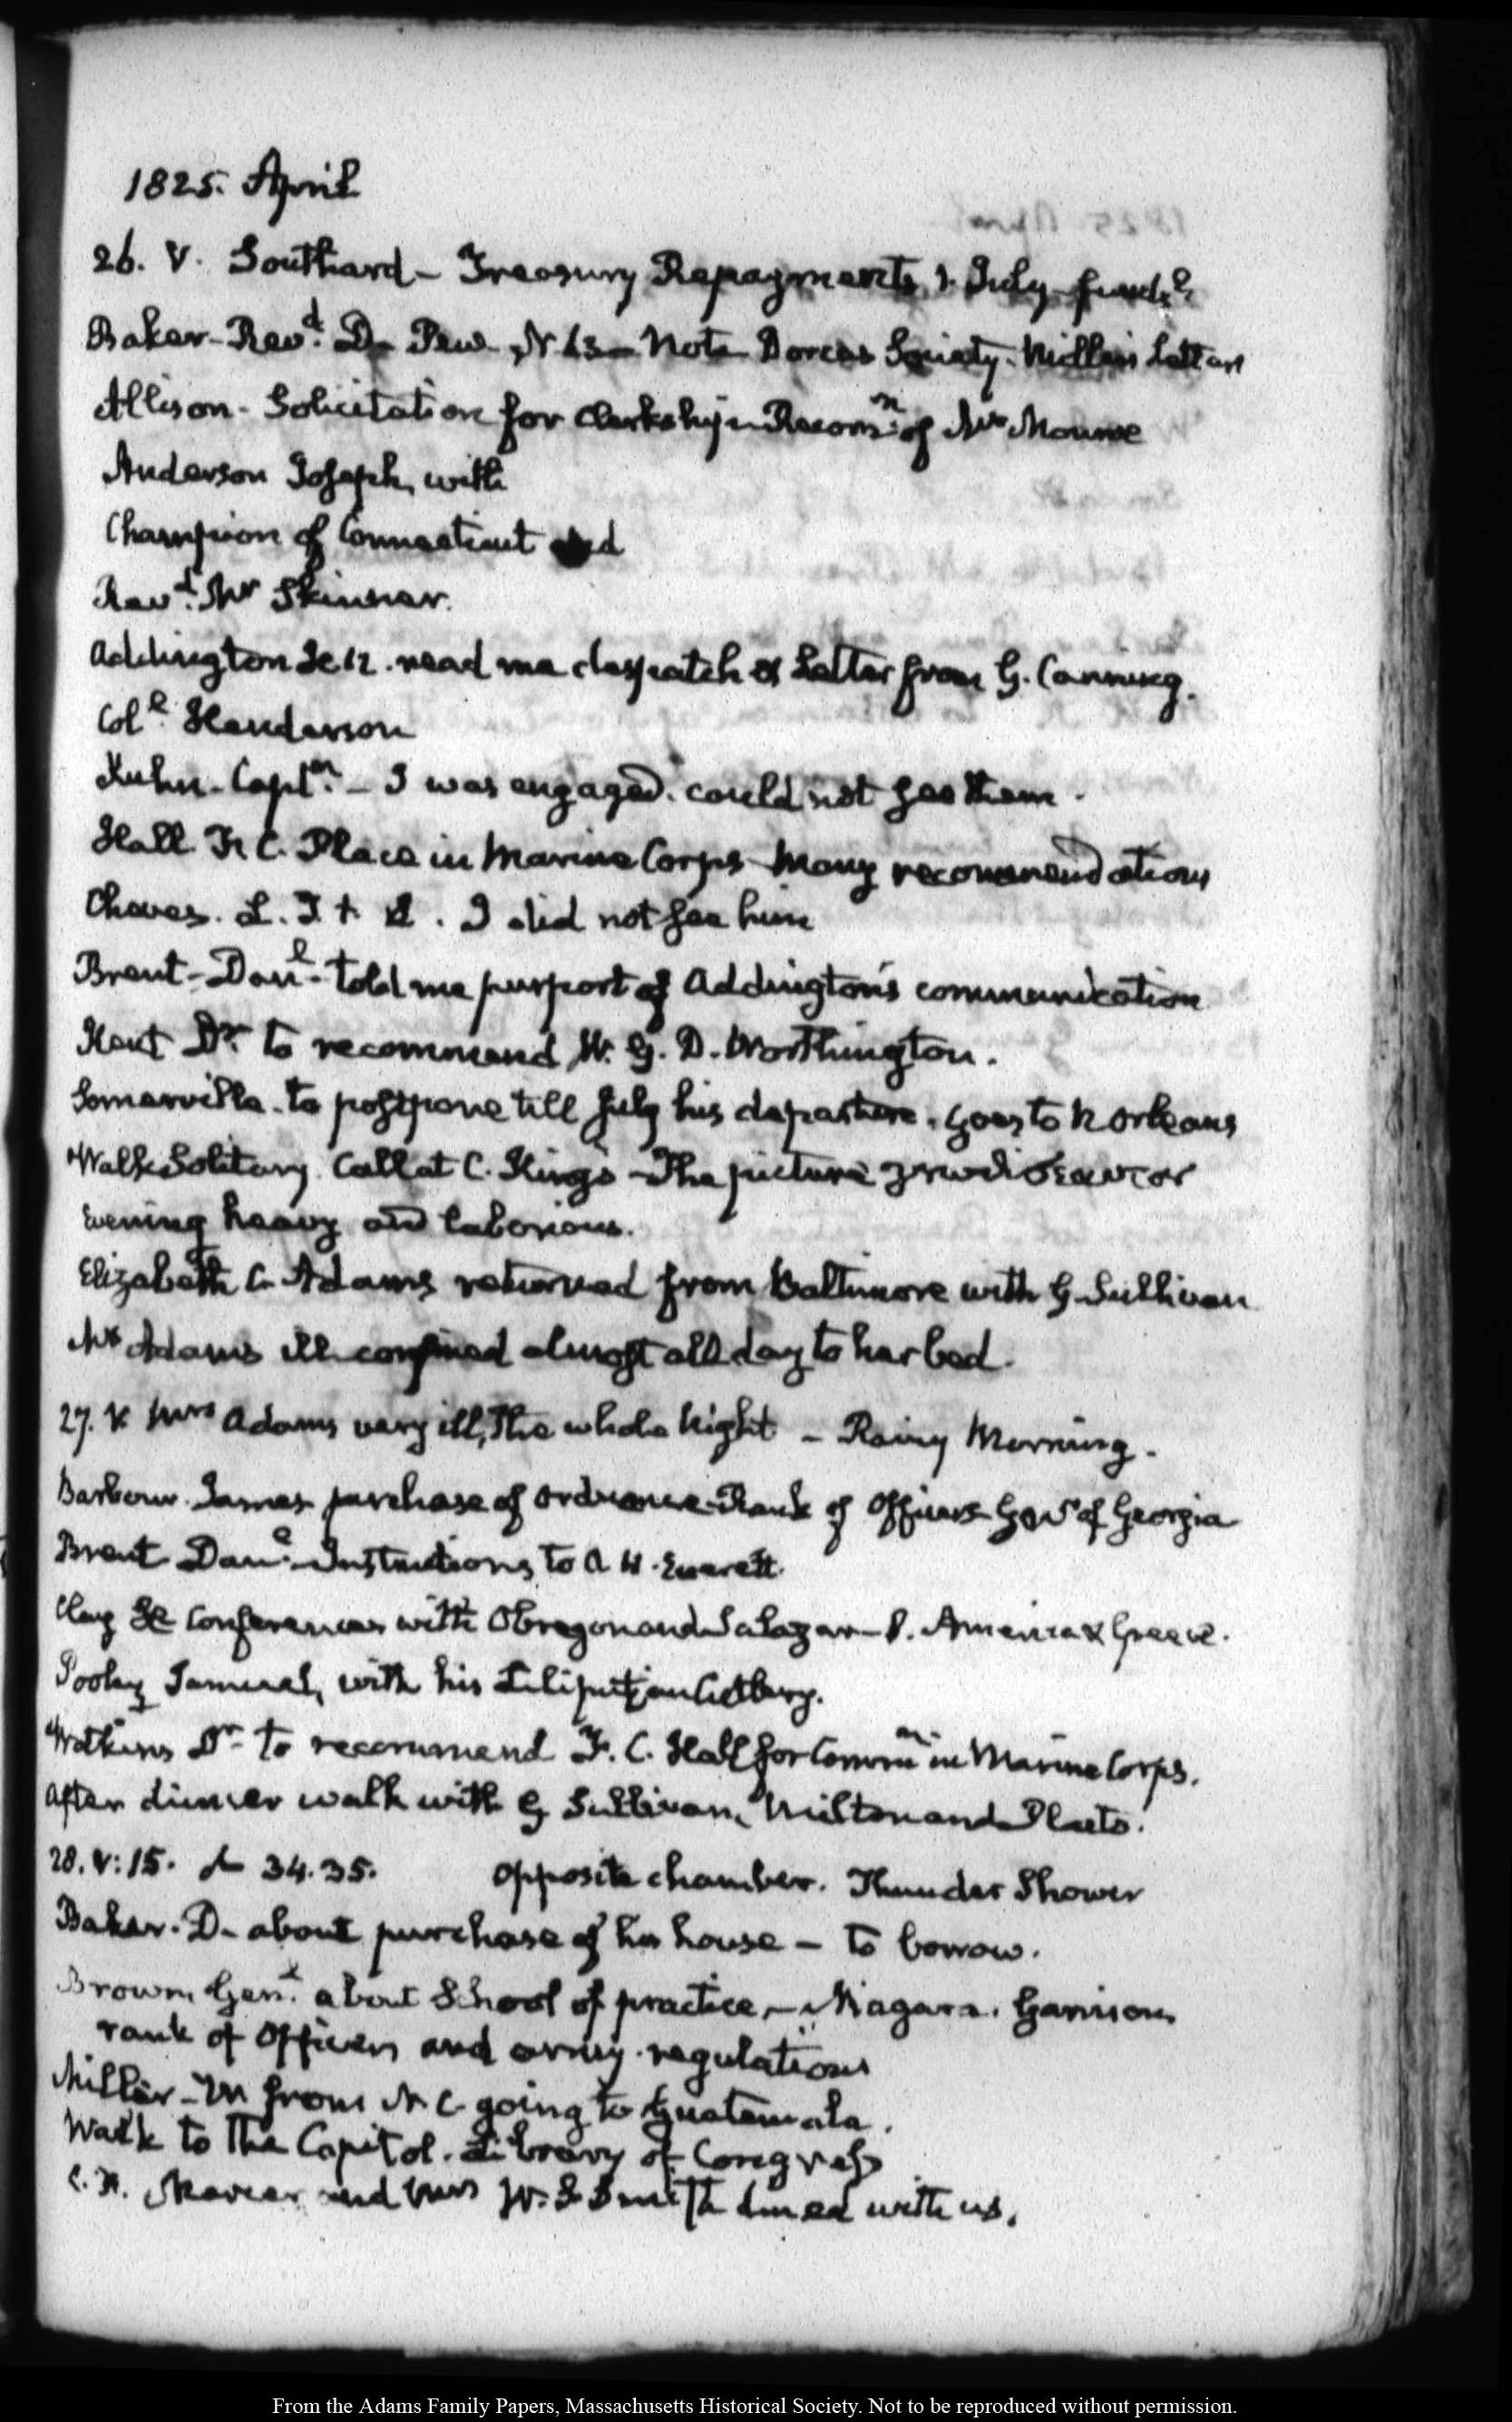 1825. April
26. V. Southard - Treasury Repayments 1. July funds
Baker - Revd. D. Pew N. 63 - Note Dorcas Society. Letters
Allison - Solicitation for Clerkship - Recomn. of Mr Monroe
Anderson Joseph, with
Champion of Connecticut and
Revd. Mr Skinner.
Addington read me despatch & Letter from G. Canning.
Coll. Henderson
Kuhn - Captn. - I was engaged. could not see them.
Hall F. C. Place in Marine Corps - Many recommendations
Cheves. L. I did not see him
Brent - Danl. - told me purport of Addington's communication
Kent Dr. to recommend W. G. D. Worthington.
Somerville. to postpone till July his departure. goes to N Orleans
Walk Solitary. Call at C. King's - The picture
Evening heavy and laborious.
Elizabeth C. Adams returned from Baltimore with G. Sullivan
Mrs Adams ill confined almost all day to her bed.
27. V. Mrs Adams very ill, the whole Night - Rainy Morning.
Barbour. James purchase of Ordnance - Rank of Officers - Govr of Georgia
Brent Danl. - Instructions to A H. Everett.
Clay Conferences with Obregon and Salazar - S. America & Greece.
Pooley Samuel, with his Liliputian Cutlery.
Watkins Dr. to recommend F. C. Hall for Commn in Marine Corps.
After dinner walk with G Sullivan, Milton and Plato.
28. V: 15. 34. 35. Opposite chamber. Thunder Shower
Baker. D. about purchase of his house - to borrow.
Brown Genl. about School of practice, - Niagara. Garrison,
rank of Officers and army regulations
Miller - from N C going to Guatemala.
Walk to the Capitol. Library of Congress
and Mrs W. S Smith dined with us.
From the Adams Family Papers, Massachusetts Historical Society. Not to be reproduced without permission.